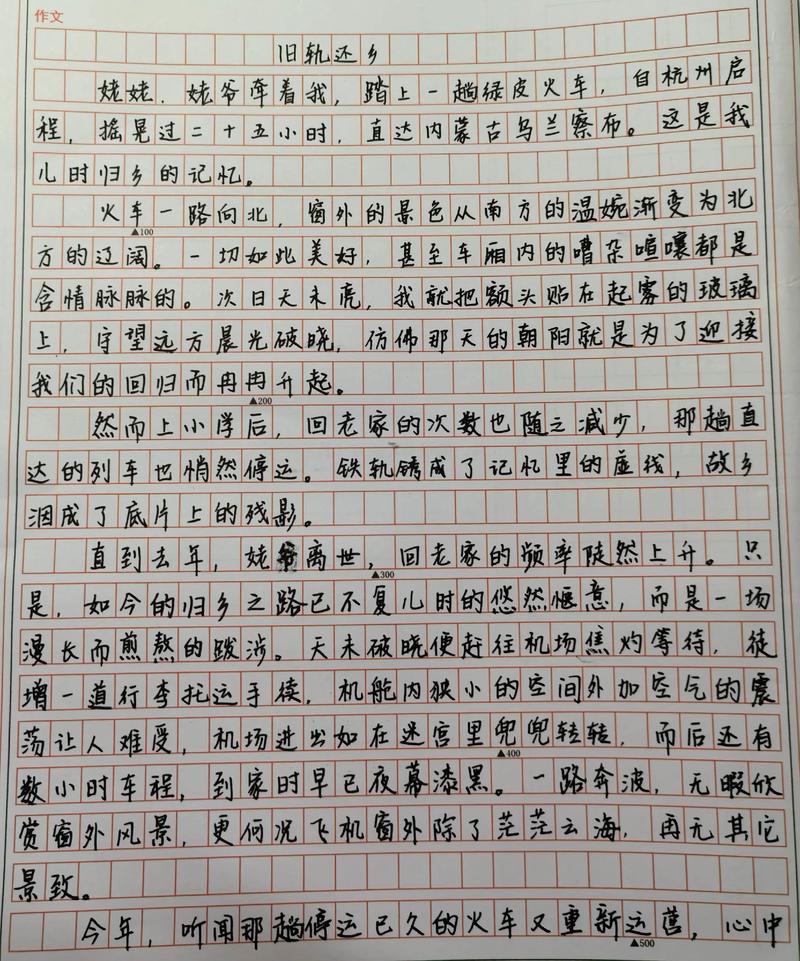 作文
旧轨还乡
姥姥、姥爷牵着我，踏上一趟绿皮火车，自杭州启
程，摇晃过二十五小时，直达内蒙古乌兰察布。这是我
儿时归乡的记忆。
火车一路向北，窗外的景色从南方的温婉渐变为北
▲100
方的辽阔。一切如此美好，甚至车厢内的嘈杂喧嚷都是
含情脉脉的。次日天未亮，我就把额头贴在起雾的玻璃
上，守望远方晨光破晓，仿佛那天的朝阳就是为了迎接
我们的回归而冉冉升起。
▲200
然而上小学后，回老家的次数也随之减少，那趟直
达的列车也悄然停运。铁轨锈成了记忆里的虚线，故乡
洇成了底片上的残影。
直到去年，姥爷离世，回老家的频率陡然上升。只
▲300
是，如今的归乡之路已不复儿时的悠然惬意，而是一场
漫长而煎熬的跋涉。天未破晓便赶往机场焦灼等待，徒
增一道行李托运手续，机舱内狭小的空间外加空气的震
荡让人难受，机场进出如在迷宫里兜兜转转，而后还有
▲400
数小时车程，到家时早已夜幕漆黑。一路奔波，无暇欣
赏窗外风景，更何况飞机窗外除了茫茫云海，再无其它
景致。
今年，听闻那趟停运已久的火车又重新运营，心中
▲500